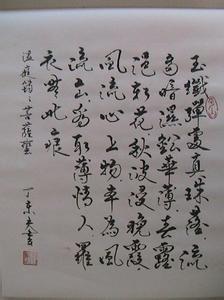 玉纖彈處真珠落流
多暗濕鉛華薄春露
浥朝花秋波浸晚霞
風流心上物本為風
流出看取薄情人羅
衣無此痕
溫庭筠之菩薩蠻
丁未